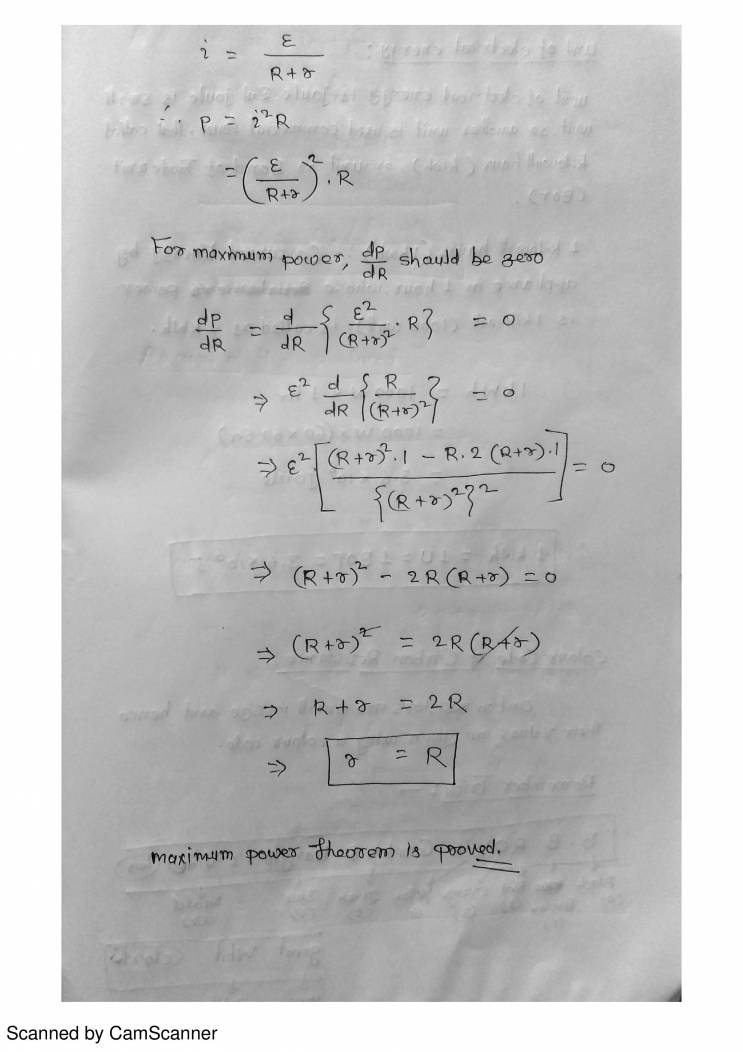 i = ε / (R + r)
∴ P = i²R
= (ε / (R+r))² . R
For maximum power, dP/dR should be zero
dP/dR = d/dR { ε² / (R+r)² . R } = 0
⇒ ε² d/dR { R / (R+r)² } = 0
⇒ ε² [ ((R+r)².1 - R.2 (R+r).1) / {(R+r)²}² ] = 0
⇒ (R+r)² - 2R(R+r) = 0
⇒ (R+r)² = 2R(R+r)
⇒ R + r = 2R
⇒ r = R
maximum power theorem is prooved.
Scanned by CamScanner